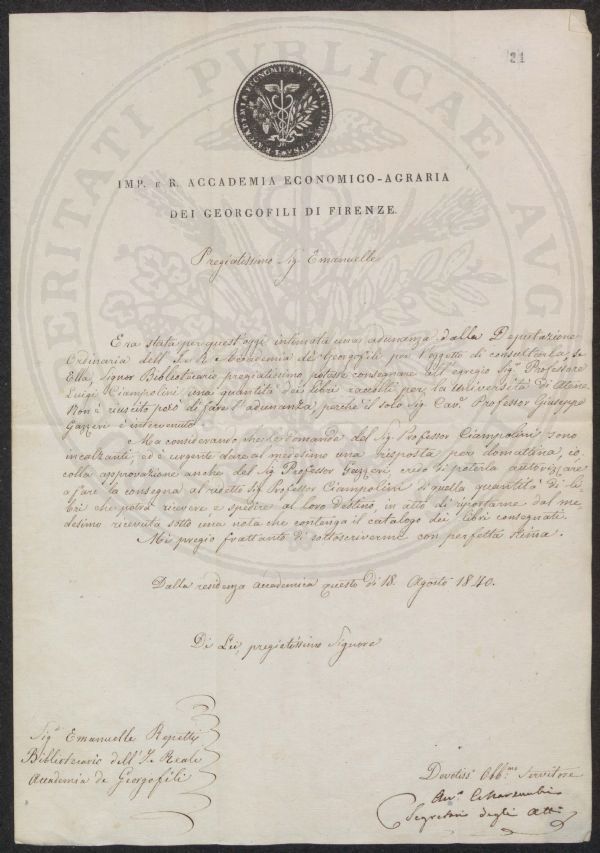 21
R. ACCADEMIA ECONOMICA AGRARIA
IMP. E R. ACCADEMIA ECONOMICO-AGRARIA
DEI GEORGOFILI DI FIRENZE.
Pregiatissimo Sig. Emanuelle
Era stata per quest'oggi intimata una adunanza dalla Deputazione
Ordinaria dell'I. e R. Accademia dei Georgofili, per l'oggetto di consultarla, se
Ella, Signor Bibliotecario pregiatissimo, potesse consegnare all'egregio Sig. Professore
Luigi Ciampolini una quantità dei libri raccolti per la Università di Atene.
Non è riuscito però di fare l'adunanza, perchè il solo Sig. Cav. Professor Giuseppe
Gazzeri è intervenuto.
Ma considerando che le domande del Sig. Professor Ciampolini sono
incalzanti, ed è urgente dare al medesimo una risposta per domattina, io
colla approvazione anche del Sig. Professor Gazzeri credo di poterla autorizzare
a fare la consegna al ridetto Sig. Professor Ciampolini di quella quantità di li-
bri che potrà ricevere e spedire al loro destino, in atto di riportarne dal me-
desimo ricevuta sotto una nota che contenga il catalogo dei libri consegnati.
Mi pregio frattanto di sottoscrivermi con perfetta stima.
Dalla residenza accademica questo dì 18. Agosto 1840.
Di Lei, pregiatissimo Signore
Sig. Emanuelle Repetti
Bibliotecario dell'I. Reale
Accademia de Georgofili
Devotis. Obb.mo Servitore
Segretario degli Atti
VERITATI PVBLICAE AVG